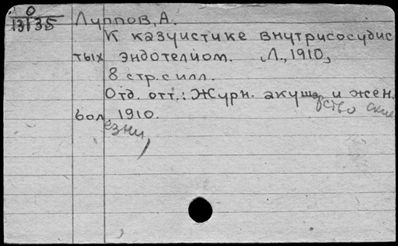 0
13135
Луппов, А.
К казуистике внутрисосудис
тых эндотелиом. Л., 1910,
8 стр. с илл.
Отд. отт.: Журн. акушерство и жен.
бол, 1910.
езни,